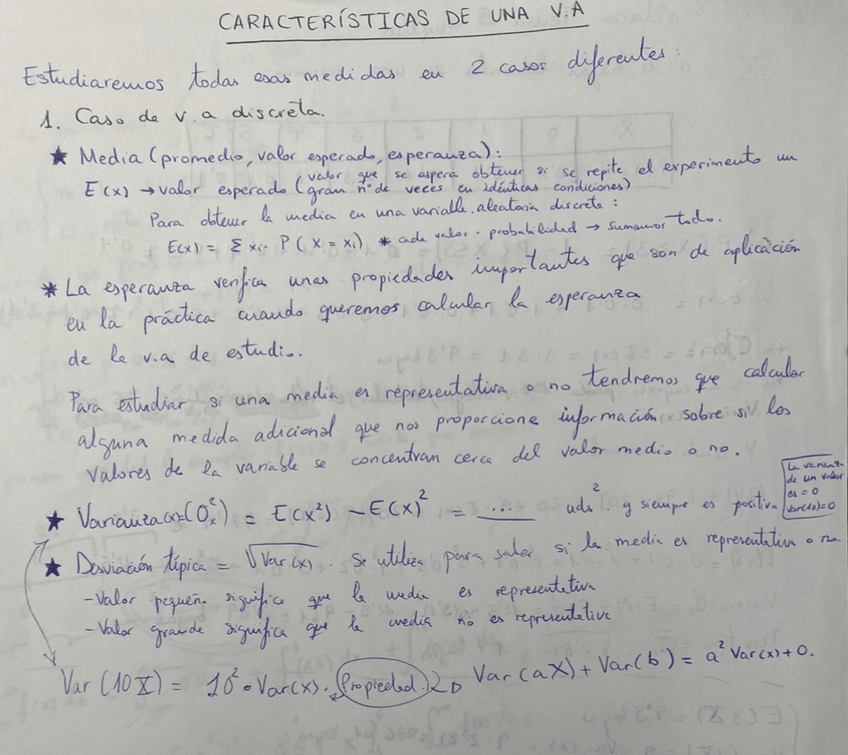 CARACTERÍSTICAS DE UNA V.A
Estudiaremos todas esas medidas en 2 casos diferentes:
1. Caso de v.a discreta.
★ Media (promedio, valor esperado, esperanza):
E(x) → valor esperado (valor que se espera obtener si se repite el experimento un
gran nº de veces en idénticas condiciones)
Para obtener la media en una variable aleatoria discreta:
E(x) = Σ xi · P(X = xi) * cada valor · probabilidad → sumamos todo.
* La esperanza verifica unas propiedades importantes que son de aplicación
en la práctica cuando queremos calcular la esperanza
de la v.a de estudio.
Para estudiar si una media es representativa o no tendremos que calcular
alguna medida adicional que nos proporcione información sobre si los
valores de la variable se concentran cerca del valor medio o no.
★ Varianza(x)=(σx²) = E(x²) - E(x)² = ... uds² y siempre es positiva
La varianza
de un valor
es = 0
Var(cte)=0
★ Desviación típica = √Var(x). Se utiliza para saber si la media es representativa o no.
- Valor pequeño significa que la media es representativa
- Valor grande significa que la media no es representativa
Var(10X) = 10² · Var(x). Propiedad. Var(aX) + Var(b) = a² Var(x) + 0.